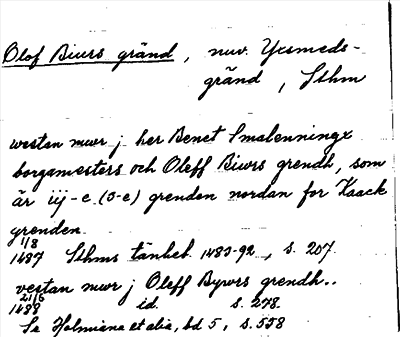 Olof Biurs gränd, nuv. Yxsmeds-
gränd, Sthm
westan mwr j her Benct Smalenningx
borgamesters och Oleff Biwrs grendh, som
är iij-e (3-e) grenden nordan for Kaack
grenden.
1/8
1487 Sthms tänkeb. 1483-92, s. 207.
vestan mwr j Oleff Bywrs grendh..
21/6
1488 id. s. 278.
Se Holmiana et alia, bd 5, s. 558